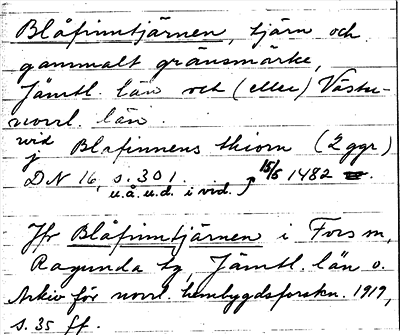 Blåfinntjärnen, tjärn och
gammalt gränsmärke,
Jämtl. län och (eller) Väster-
norrl. län.
wid Blafinnens thiorn (2 ggr)
j
DN 16, s. 301. 15/5 1482.
u.å.u.d. i vid.
Jfr Blåfinntjärnen i Fors sn,
Ragunda tg, Jämtl. län o.
Arkiv för norrl. hembygdsforskn. 1919,
s. 35 ff.